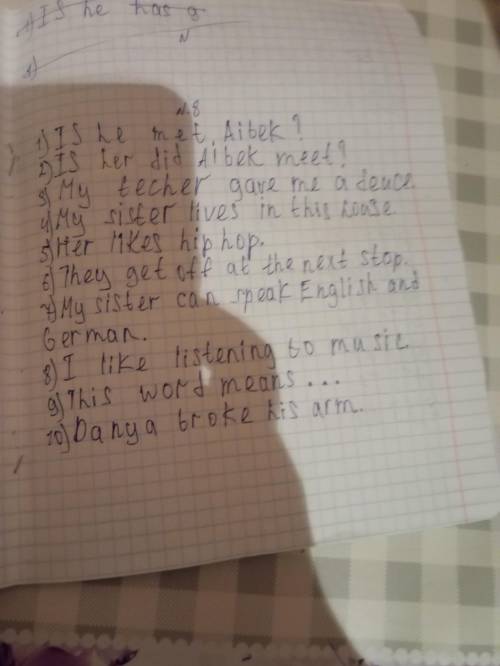 1) IS he has a
N
1)
N.8
1) IS he met Aibek?
2) IS her did Aibek meet?
3) My techer gave me a deuce.
4) My sister lives in this house.
5) Her likes hip hop.
6) They get off at the next stop.
7) My sister can speak English and
German.
8) I like listening to music.
9) This word means...
10) Danya broke his arm.